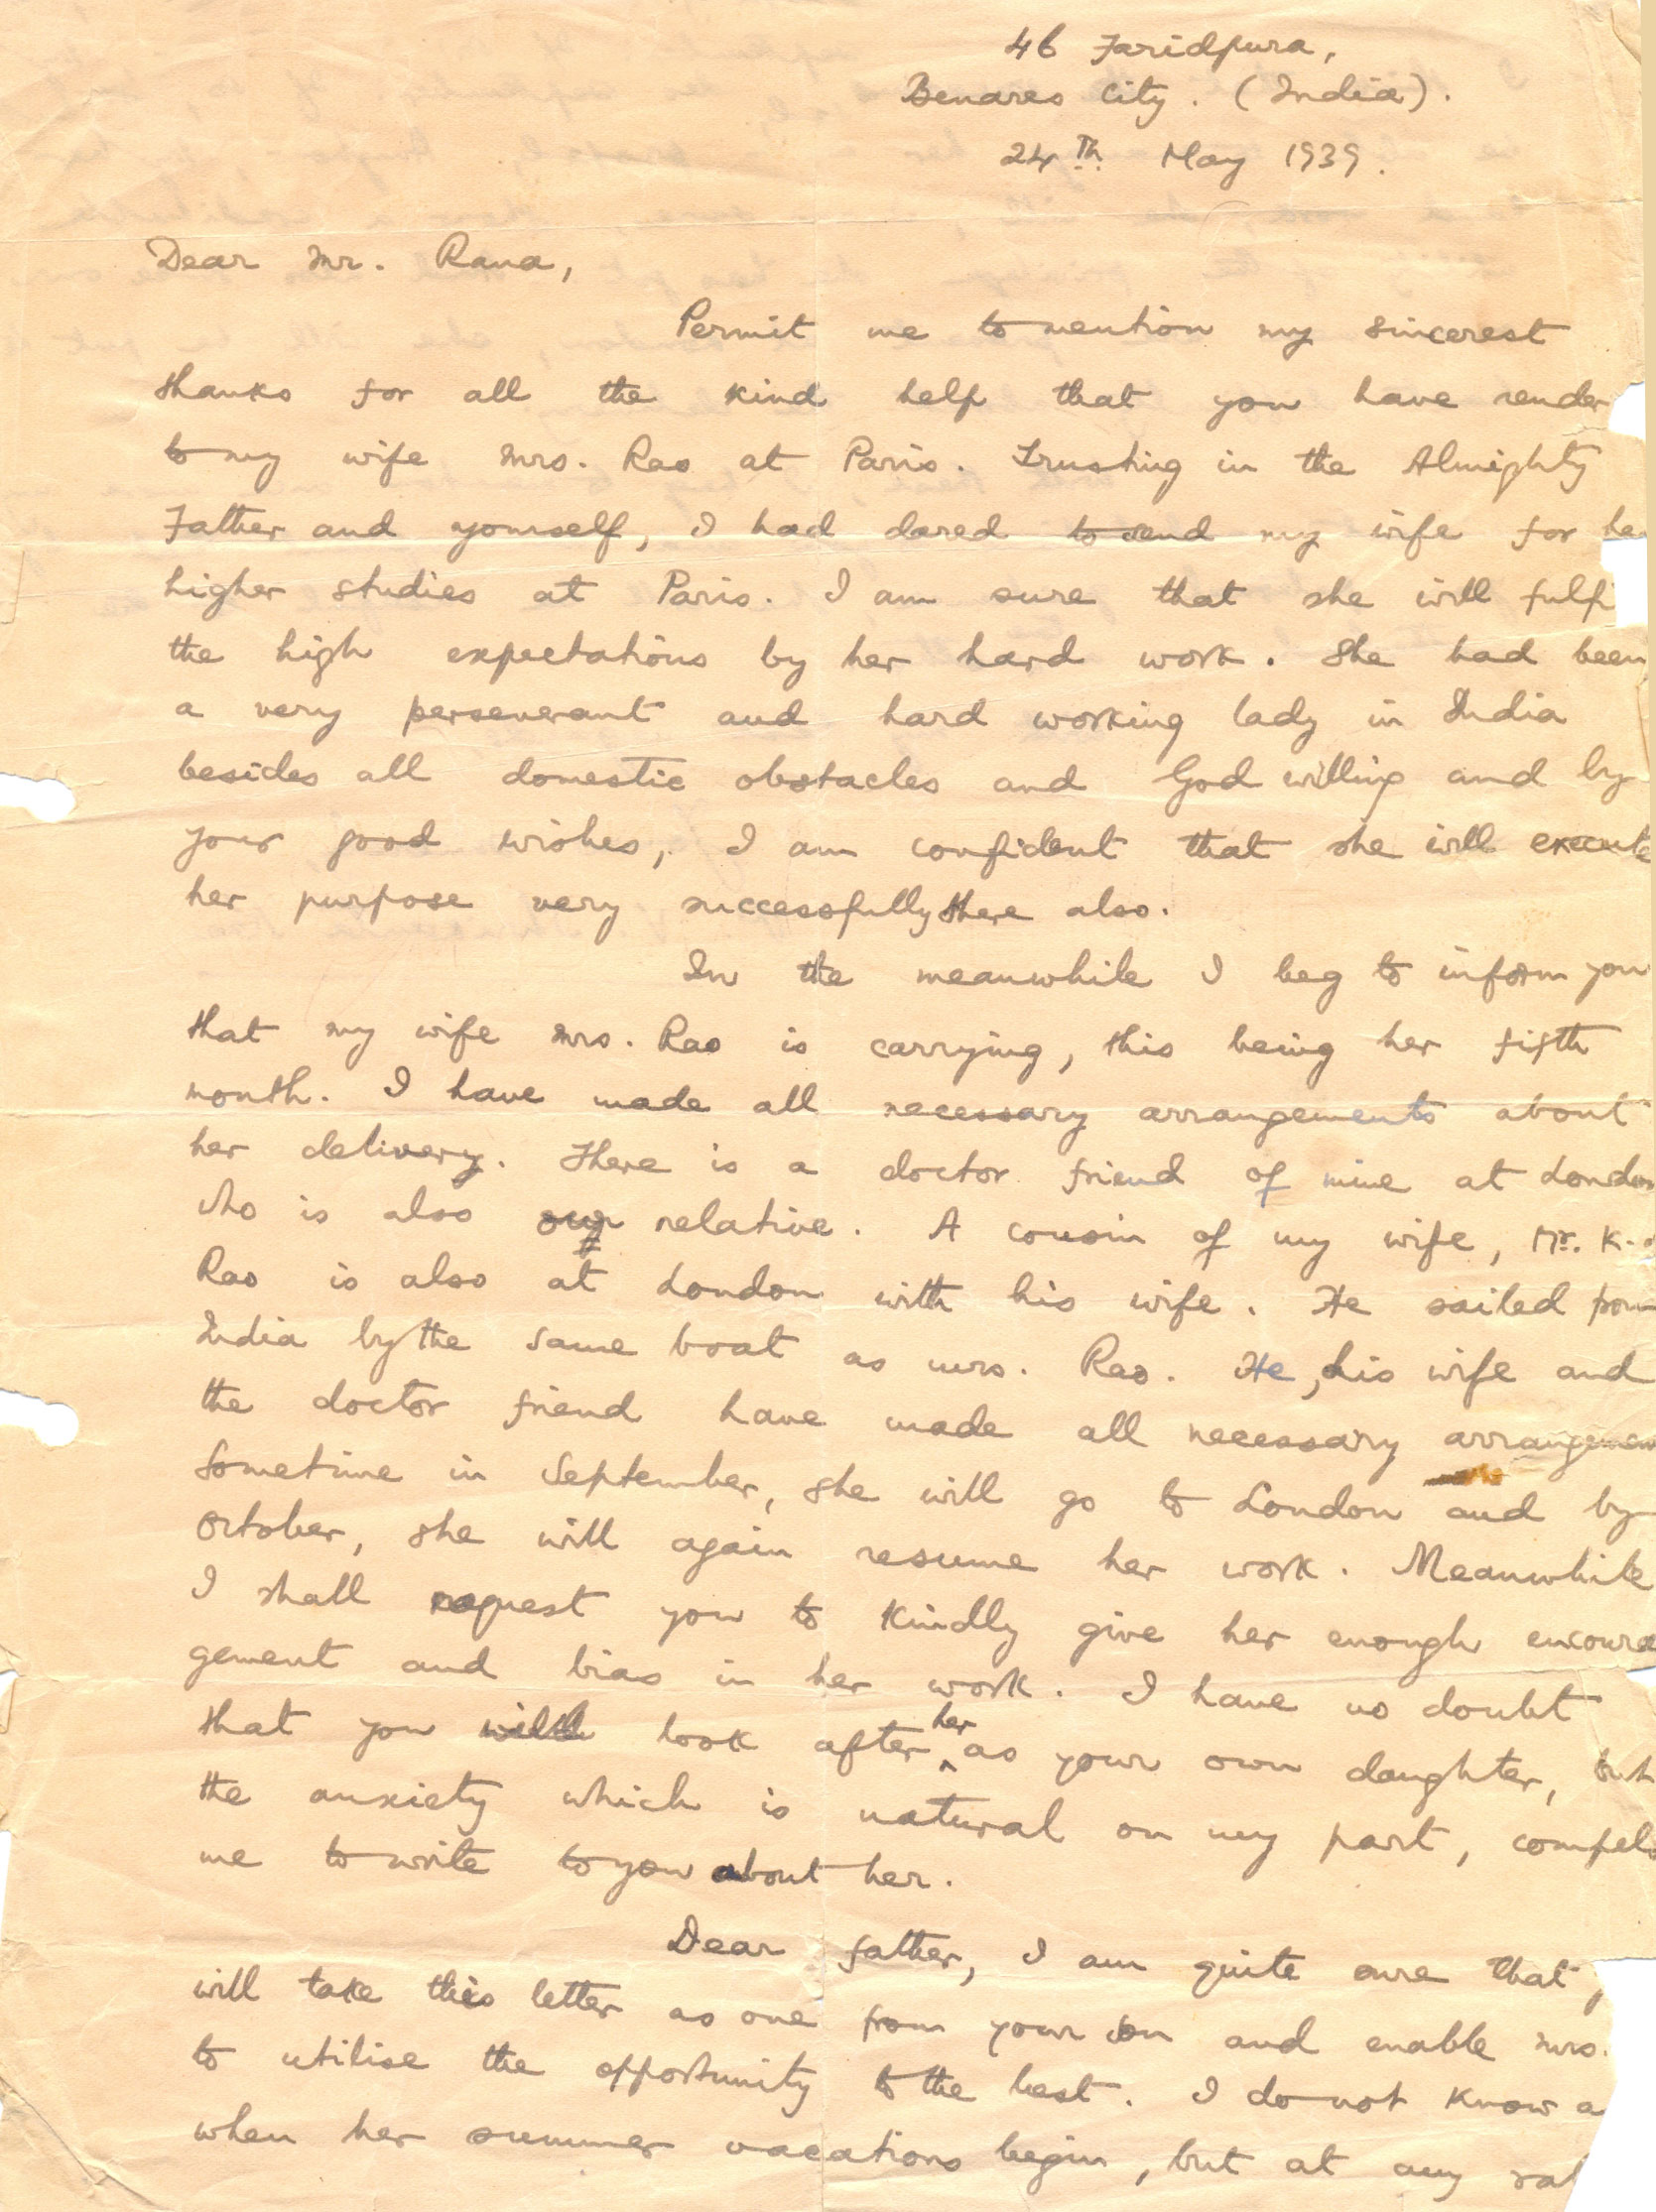 46 Faridpura,
Benares City. (India).
24th May 1939.
Dear Mr. Rana,
Permit me to mention my sincerest
thanks for all the kind help that you have render
to my wife Mrs. Rao at Paris. Trusting in the Almighty
Father and yourself, I had dared to send my wife for he
higher studies at Paris. I am sure that she will fulfi
the high expectations by her hard work. She had been
a very perseverant and hard working lady in India
besides all domestic obstacles and God willing and by
your good wishes, I am confident that she will execute
her purpose very successfully there also.
In the meanwhile I beg to inform you
that my wife Mrs. Rao is carrying, this being her fifth
month. I have made all necessary arrangements about
her delivery. There is a doctor friend of mine at London
who is also our relative. A cousin of my wife, Mr. K.
Rao is also at London with his wife. He sailed from
India by the same boat as Mrs. Rao. He, his wife and
the doctor friend have made all necessary arrangemen
Sometime in September, she will go to London and by
October, she will again resume her work. Meanwhile
I shall request you to kindly give her enough encoura
gement and bias in her work. I have no doubt
that you will look after her as your own daughter, but
the anxiety which is natural on my part, compels
me to write to you about her.
Dear father, I am quite sure that y
will take this letter as one from your son and enable Mrs.
to utilise the opportunity to the best. I do not know a
when her summer vacations begin, but at any rat